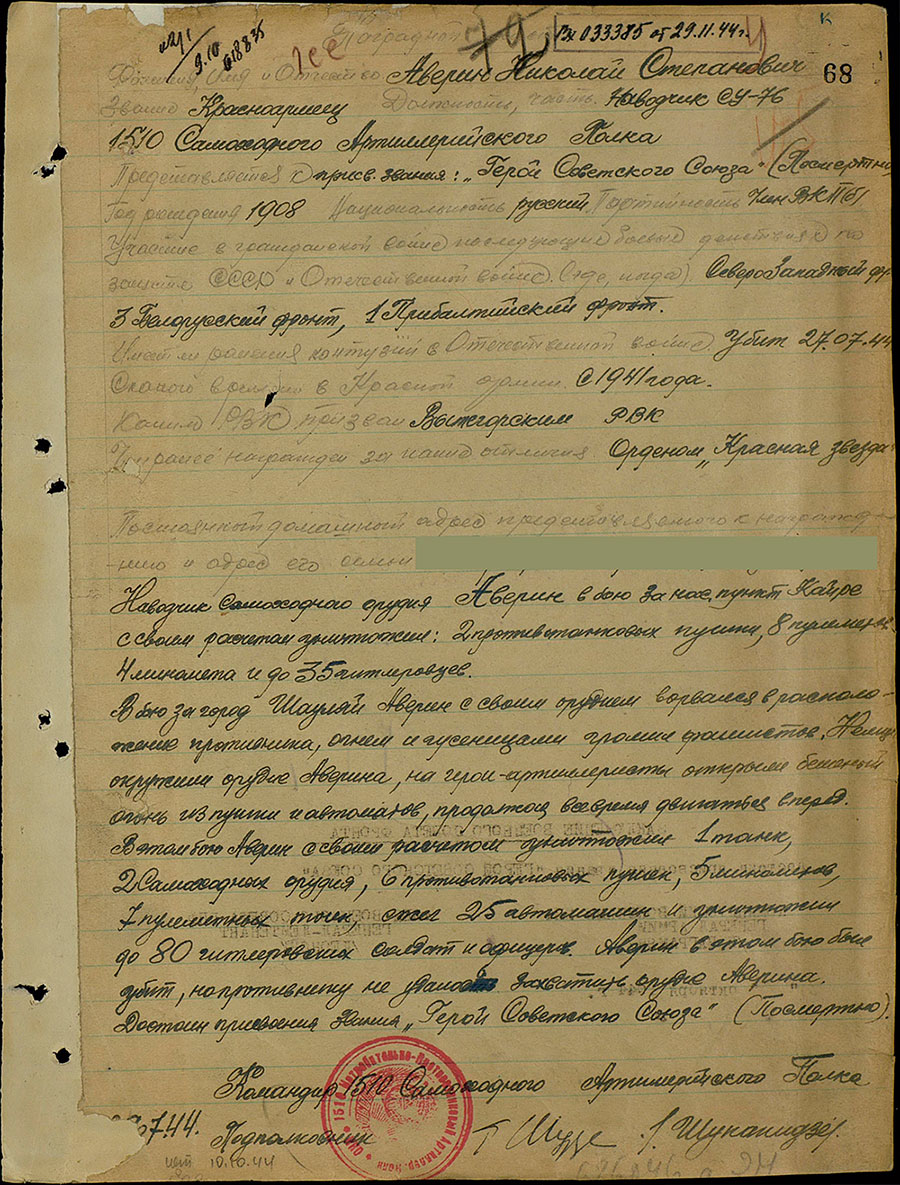 Наградной
Вх 033385 от 29.11.44г.
9.10
018835
68
Фамилия, Имя и Отчество Аверин Николай Степанович
Звание Красноармеец Должность, часть Наводчик СУ-76
1510 Самоходного Артиллерийского Полка
Представляется к присв. звания: „Герой Советского Союза" (Посмертно)
Год рождения 1908 Национальность русский Партийность Член ВКП(б)
Участие в гражданской войне последующие боевые действиях по
защите СССР и Отечественной войне (где, когда) Северо Западный фр.
3 Белорусский фронт, 1 Прибалтийский фронт.
Имеет ли ранения контузии в Отечественной войне Убит 27.07.44
С какого времени в Красной армии с 1941 года.
Каким РВК призван Вытегорским РВК
Чем ранее награжден за какие отличия Орденом „Красная звезда"
Постоянный домашний адрес представляемого к награжде-
-нию и адрес его семьи
Наводчик самоходного орудия Аверин в бою за нас. пункт Кайре
с своим расчетом уничтожил: 2 противотанковых пушки, 8 пулеметов,
4 миномета и до 35 гитлеровцев.
В бою за город Шауляй Аверин с своим орудием ворвался в располо-
жение противника, огнем и гусеницами громил фашистов. Немцы
окружили орудие Аверина, но герои-артиллеристы открыли бешеный
огонь из пушки и автоматов, продолжая все время двигаться вперед.
В этом бою Аверин с своим расчетом уничтожил 1 танк,
2 Самоходных орудия, 6 противотанковых пушек, 5 минометов,
7 пулеметных точек, сжег 25 автомашин и уничтожил
до 80 гитлеровских солдат и офицеров. Аверин в этом бою был
убит, но противнику не удалось захватить орудие Аверина.
Достоин присвоения звания „Герой Советского Союза" (Посмертно).
Командир 1510 Самоходного Артиллерийского Полка
Подполковник
7.44.
10.10.44